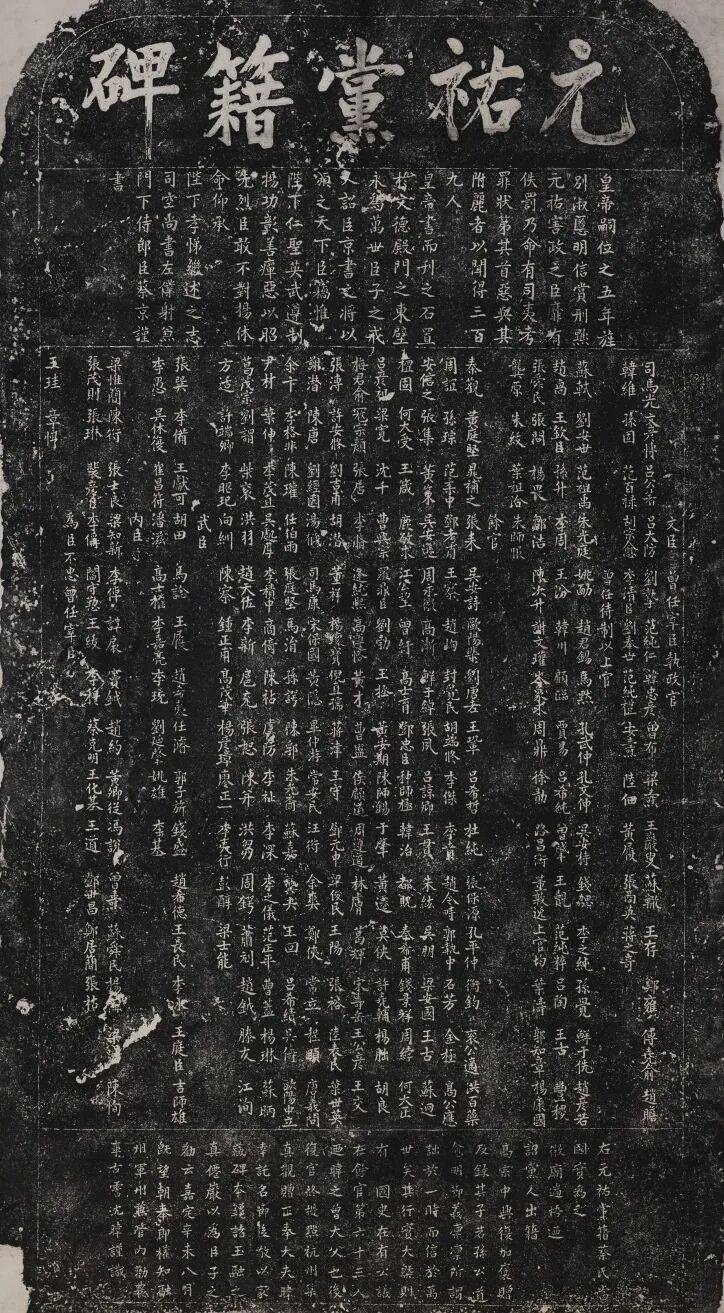 元祐黨籍碑
皇帝嗣位之五年旌
別淑慝明信賞刑黜
元祐害政之臣靡有
佚罰乃命有司夷考
罪狀第其首惡與其
附麗者以聞得三百
九人
皇帝書而刊之石置
于文德殿門之東壁
永為萬世臣子之戒
又詔臣京書之將以
頒之天下臣竊惟
陛下仁聖英武遵制
揚功彰善癉惡以昭
先烈臣敢不對揚休
命仰承
陛下孝悌繼述之志
司空尚書左僕射兼
門下侍郎臣蔡京謹
書
文臣 曾任宰臣執政官
司馬光 文彥博 呂公著 呂大防 劉摯 范純仁 韓忠彥 曾布 梁燾 王巖叟 蘇轍 王存 鄭雍 傅堯俞 趙瞻
韓維 孫固 范百祿 胡宗愈 李清臣 劉奉世 范純禮 安燾 陸佃 黃履 張商英 蔣之奇
曾任待制以上官
蘇軾 劉安世 范祖禹 朱光庭 姚勔 趙君錫 馬默 孔武仲 孔文仲 吳安持 錢勰 李之純 孫覺 鮮于侁 趙彥若
趙卨 王欽臣 孫升 李周 王汾 韓川 顧臨 賈易 呂希純 曾肇 王覿 范純粹 呂陶 王古 豐稷
張舜民 張問 楊畏 鄒浩 陳次升 謝文瓘 岑象求 周鼎 徐勣 路昌衡 董敦逸 上官均 葉濤 郭知章 楊康國
龔原 朱紱 葉祖洽 朱師服
餘官
秦觀 黃庭堅 晁補之 張耒 吳安詩 歐陽棐 劉唐老 王鞏 呂希哲 杜純 張保源 孔平仲 衡鈞 袞公適 洪百藥
周誼 孫琮 范柔中 鄧考甫 王察 趙峋 封覺民 胡端修 李傑 李賁 趙令畤 郭執中 石芳 金極 高公應
安信之 張集 黃策 吳安遜 周永徽 高漸 鮮于綽 張夙 呂諒卿 王貫 朱紘 吳明 梁安國 王古 蘇迥
檀固 何大受 王箴 鹿敏求 江公望 曾紆 高士育 鄧忠臣 种師極 韓治 都貺 秦希甫 錢景祥 周綍 何大正
呂彥祖 梁寬 沈千 曹興宗 羅鼎臣 劉勃 王拯 黃安期 陳師錫 于肇 黃遷 莫佽 許堯輔 楊朏 胡良
梅君俞 寇宗顏 張居 李修 逄純熙 高遵恪 黃才 曹盥 侯顧道 周遵道 林膚 葛輝 宋壽岳 王公彥 王交
張溥 許安修 劉吉甫 胡潛 董祥 楊瓌寶 倪直孺 蔣津 王守 鄧允中 梁俊民 王陽 張裕 陸表民 葉世英
謝潛 陳唐 劉經國 湯馘 司馬康 宋保國 黃隱 畢仲游 常安民 汪衍 余爽 鄭俠 常立 程頤 唐義問
余卞 李格非 陳瓘 任伯雨 張庭堅 馬涓 孫諤 陳郛 朱光裔 蘇嘉 龔夬 王回 呂希績 吳儔 歐陽中立
尹材 葉伸 李茂直 吳處厚 李積中 商倚 陳祐 虞防 李祉 李深 李之儀 范正平 曹蓋 楊琳 蘇昞
葛茂宗 劉謂 柴袞 洪羽 趙天佐 李新 扈充 張恕 陳并 洪芻 周鍔 蕭刓 趙越 滕友 江洵
方适 許端卿 李昭玘 向紃 陳察 鍾正甫 高茂華 楊彥璋 廖正一 李夷行 彭醇 梁士能
武臣
張巽 李備 王獻可 胡田 馬諗 王履 趙希夷 任濬 郭子旂 錢盛 趙希德 王長民 李永 王庭臣 吉師雄
李愚 吳休復 崔昌符 潘滋 高士權 李嘉亮 李珫 劉延肇 姚雄 李基
內臣
梁惟簡 陳衍 張士良 梁知新 李倬 譚扆 竇鉞 趙約 黃卿從 馮說 曾燾 蘇舜民 楊偁 梁 陳恂
張茂則 張琳 裴彥臣 李偁 閻守懃 王紱 李穆 蔡克明 王化基 王道 鄧世昌 鄭居簡 張祐
為臣不忠曾任宰臣
王珪 章惇
右元祐黨籍蔡氏當
國實為之
徽廟遄悟迺
詔黨人出籍
高宗中興復加褒贈
及錄其子若孫公道
愈明節義凛凛所謂
詘於一時而信於萬
世矣其行實大槩則
有 國史在有公議
在餘官第六十三人
迺暐之曾大父也後
復官終提點杭州集
真觀贈正奉大夫暐
幸託名節後敬以家
藏碑本鑱諸玉融之
真僊巖以為臣子之
勸云嘉定辛未八月
既望朝奉郎權知融
州軍州兼管內勸農
事古雲沈暐謹識